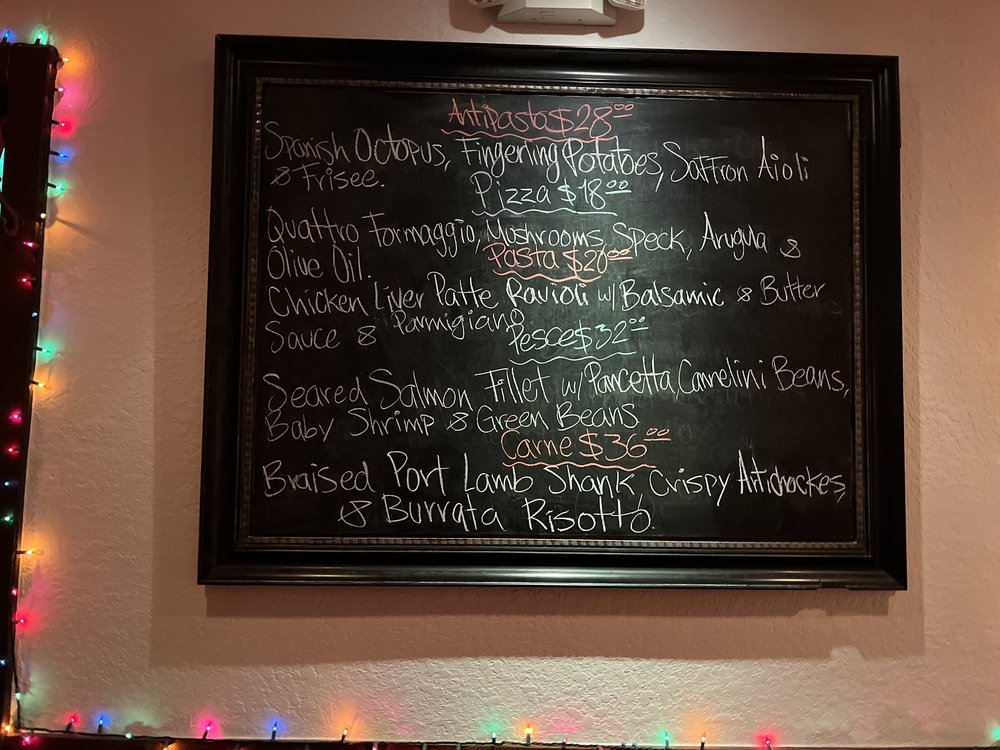 AntiPasta $28.00
Spanish Octopus, Fingerling Potatoes, Saffron Aioli
& Frisee.
Pizza $18.00
Quattro Formaggio, Mushrooms, Speck, Arugula &
Olive Oil.
Pasta $20.00
Chicken Liver Patte Ravioli w/ Balsamic & Butter
Sauce & Parmigiano
Pesce $32.00
Seared Salmon Fillet w/ Pancetta, Cannelini Beans,
Baby Shrimp & Green Beans
Carne $36.00
Braised Port Lamb Shank Crispy Artichockes,
& Burrata Risotto.